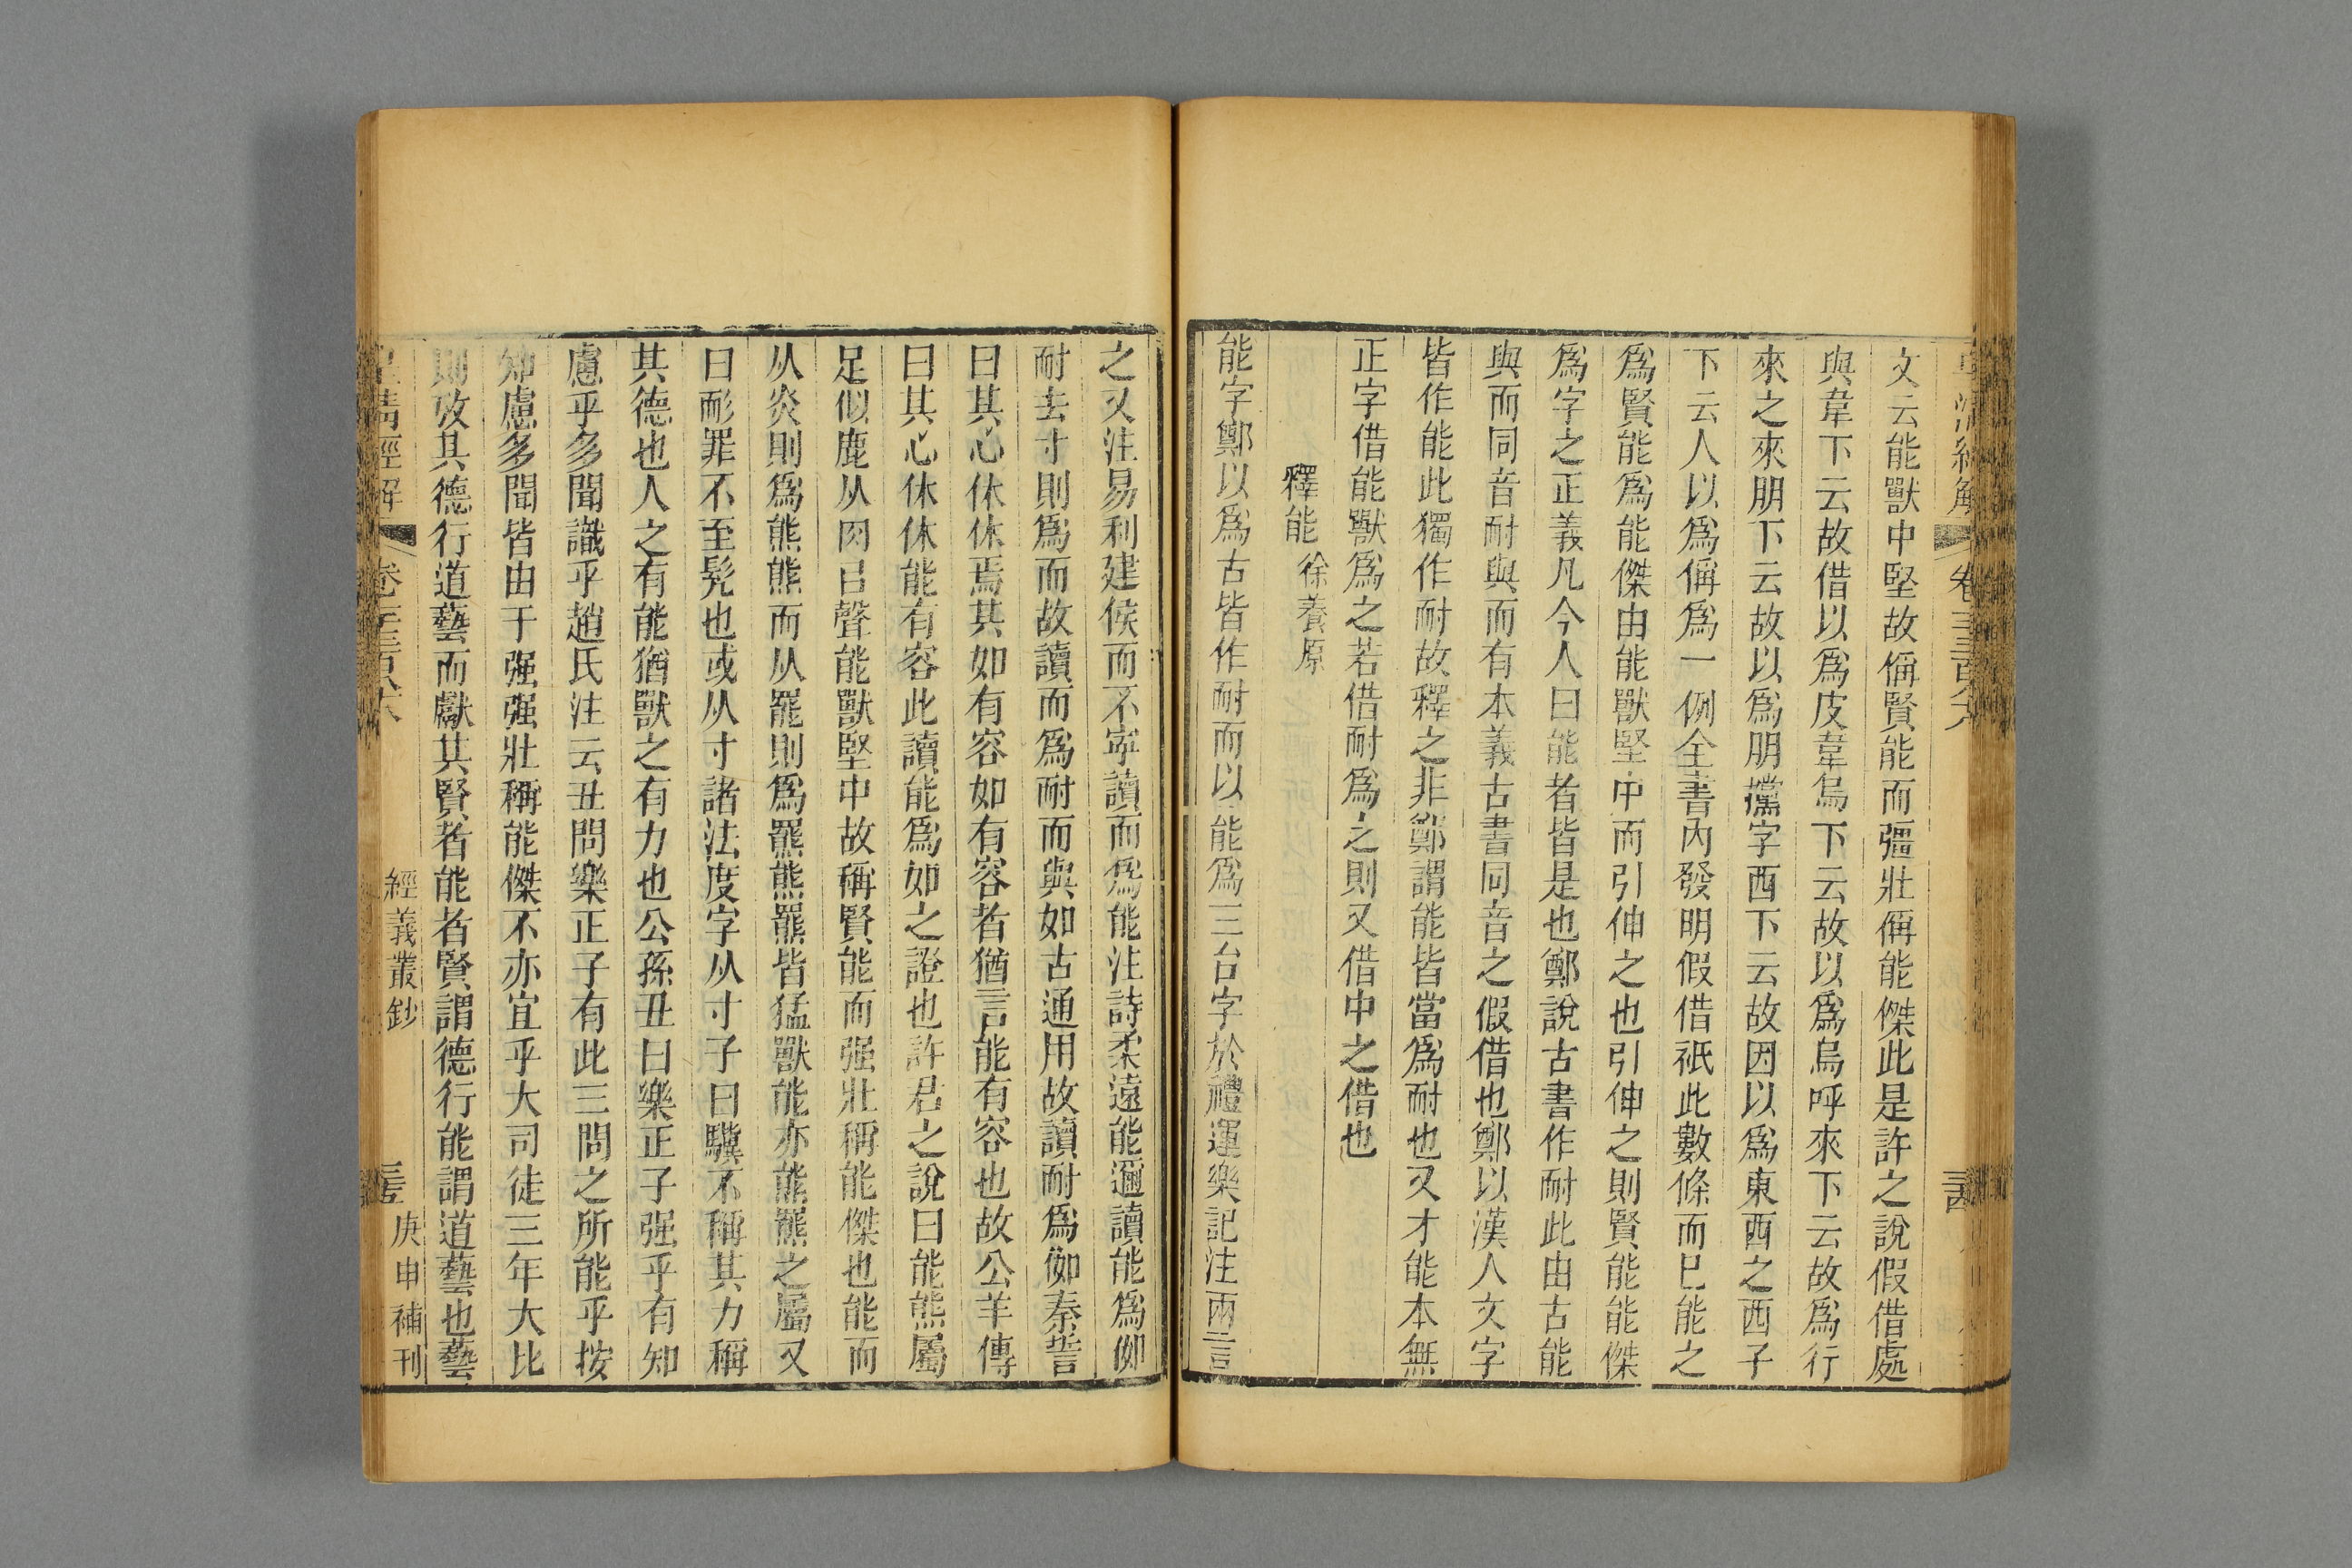 皇清經解 卷一千三百九十六
文云能獸中堅故偁賢能而彊壯偁能傑此是許之說假借處
與韋下云故借以爲皮韋烏下云故以爲烏呼來下云故爲行
來之來朋下云故以爲朋攩字西下云故因以爲東西之西子
下云人以爲偁爲一例全書內發明假借祇此數條而已能之
爲賢能爲能傑由能獸堅中而引伸之也引伸之則賢能能傑
爲字之正義凡今人曰能者皆是也鄭說古書作耐此由古能
與而同音耐與而有本義古書同音之假借也鄭以漢人文字
皆作能此獨作耐故釋之非鄭謂能皆當爲耐也又才能本無
正字借能獸爲之若借耐爲之則又借中之借也
釋能 徐養原
能字鄭以爲古皆作耐而以能爲三台字於禮運樂記注兩言
之又注易利建侯而不寧讀而爲能注詩柔遠能邇讀能爲㑄
耐去寸則爲而故讀而爲耐而與如古通用故讀耐爲㑄秦誓
曰其心休休焉其如有容如有容者猶言能有容也故公羊傳
曰其心休休能有容此讀能爲如之證也許君之說曰能熊屬
足似鹿从肉㠯聲能獸堅中故稱賢能而强壯稱能傑也能而
从炎則爲熊熊而从罷則爲羆熊羆皆猛獸能亦熊羆之屬又
曰耏罪不至髡也或从寸諸法度字从寸子曰驥不稱其力稱
其德也人之有能猶獸之有力也公孫丑曰樂正子强乎有知
慮乎多聞識乎趙氏注云丑問樂正子有此三問之所能乎按
知慮多聞皆由于强强壯稱能傑不亦宜乎大司徒三年大比
則攷其德行道藝而獻其賢者能者賢謂德行能謂道藝也藝
皇清經解 經義叢鈔 庚申補刊